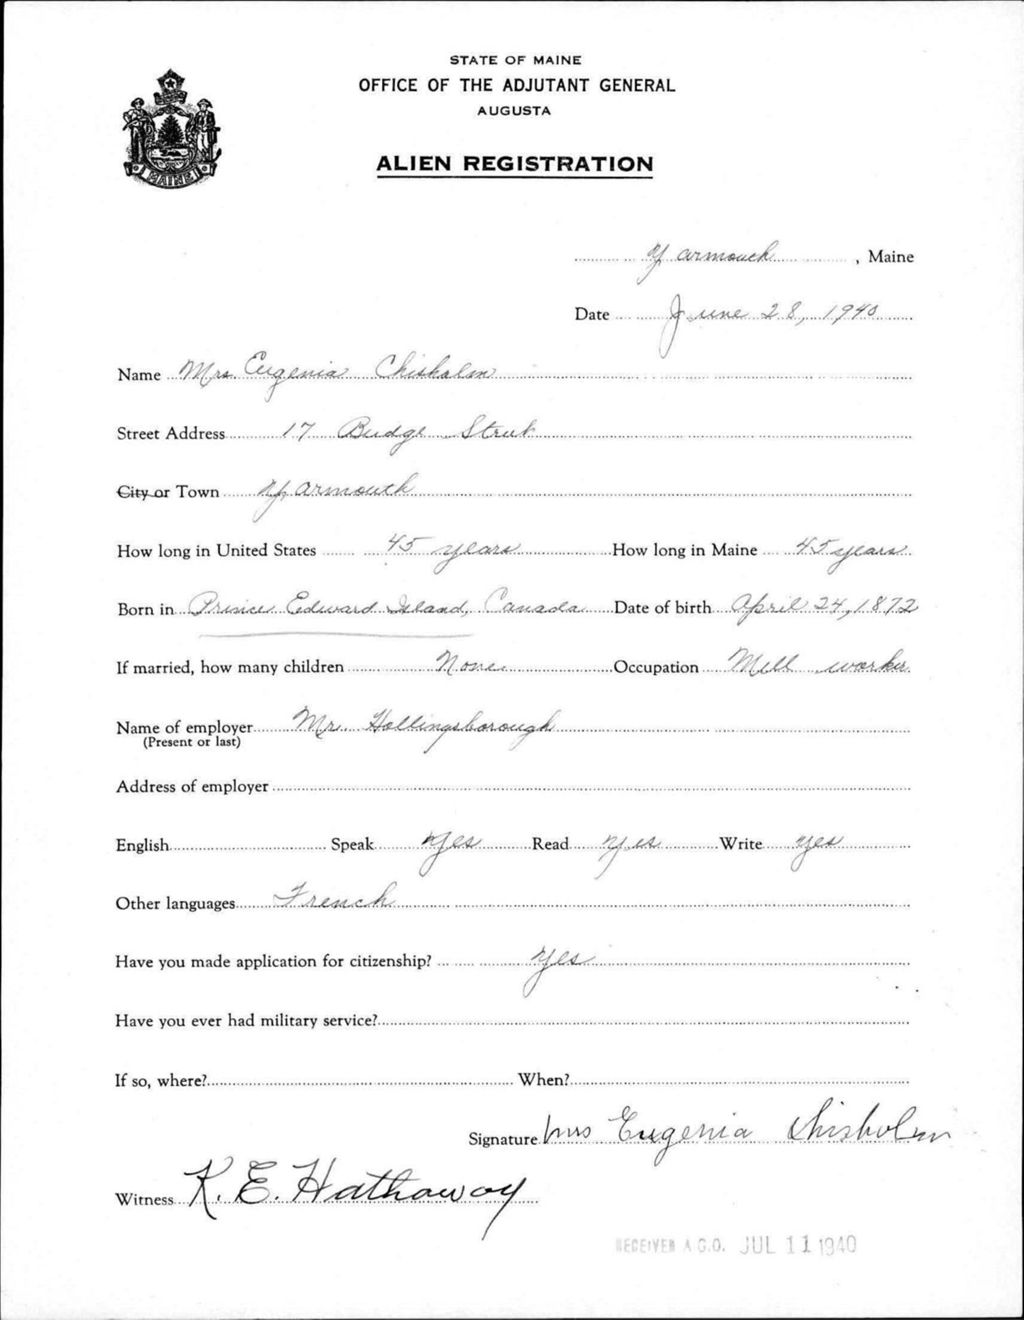 STATE OF MAINE
OFFICE OF THE ADJUTANT GENERAL
AUGUSTA
MAINE
ALIEN REGISTRATION
Yarmouth, Maine
Date June 28, 1940
Name Mrs. Eugenia Chisholm
Street Address 17 Budge Street
City or Town Yarmouth
How long in United States 45 years How long in Maine 45 years
Born in Prince Edward Island, Canada Date of birth April 24, 1872
If married, how many children None Occupation Mill worker
Name of employer Mr. Hollingsborough
(Present or last)
Address of employer
English Speak Yes Read Yes Write Yes
Other languages French
Have you made application for citizenship? Yes
Have you ever had military service?
If so, where? When?
Signature Mrs Eugenia Chisholm
Witness K. E. Hathaway
RECEIVED A.G.O. JUL 11 1940